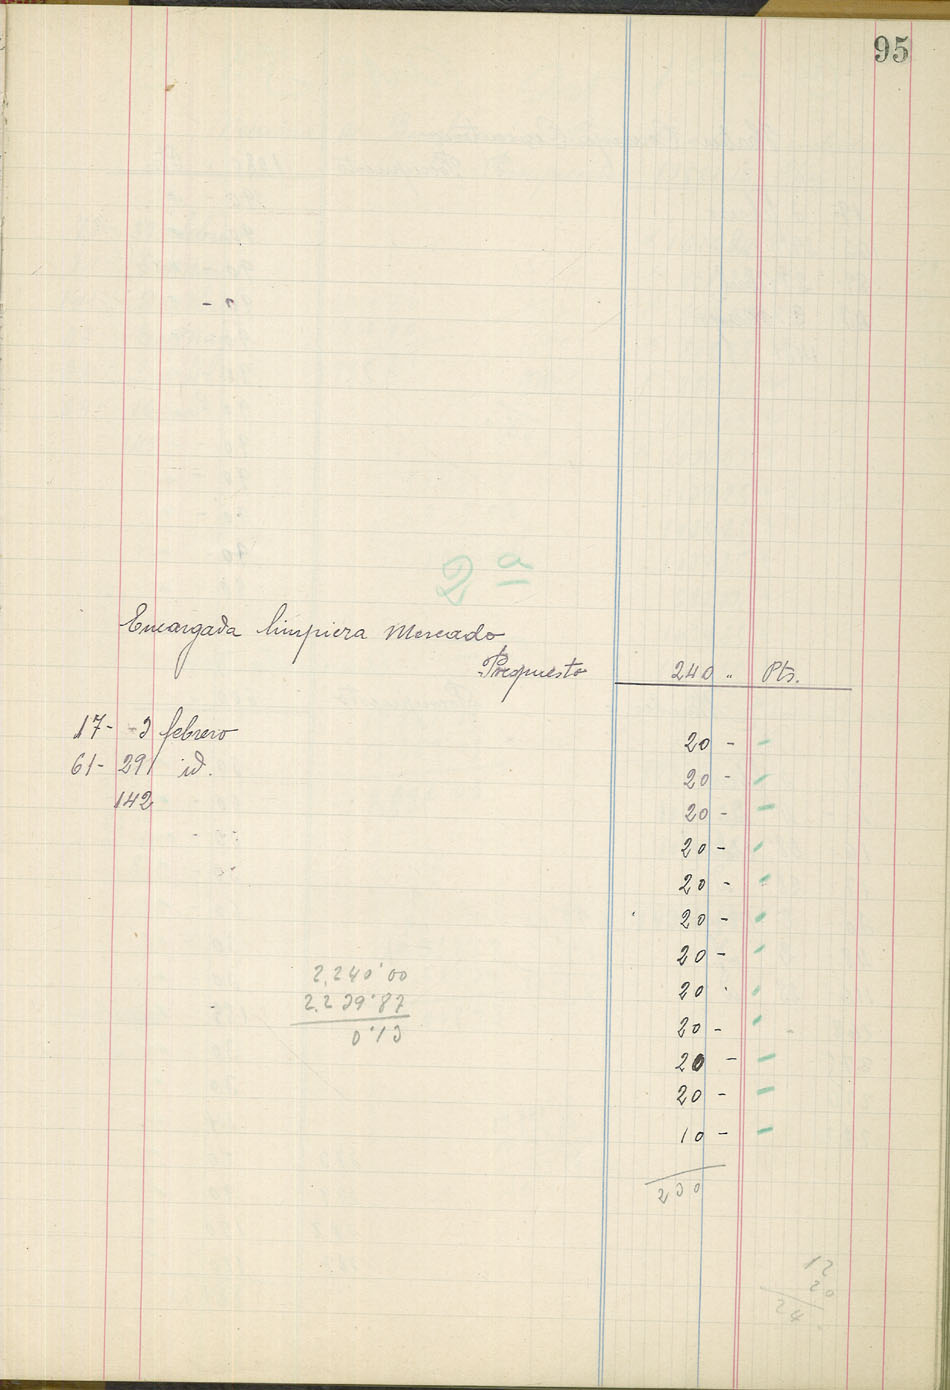 95
2ª
Encargada limpieza Mercado
Prespuesto 240 " Pts.
17- -3 febrero 20 -
61- 29 id. 20 -
142 20 -
20 -
20 -
20 -
20 -
20 -
20 -
20 -
20 -
10 -
230
2,240'00
2,239'87
0'13
12
20
24